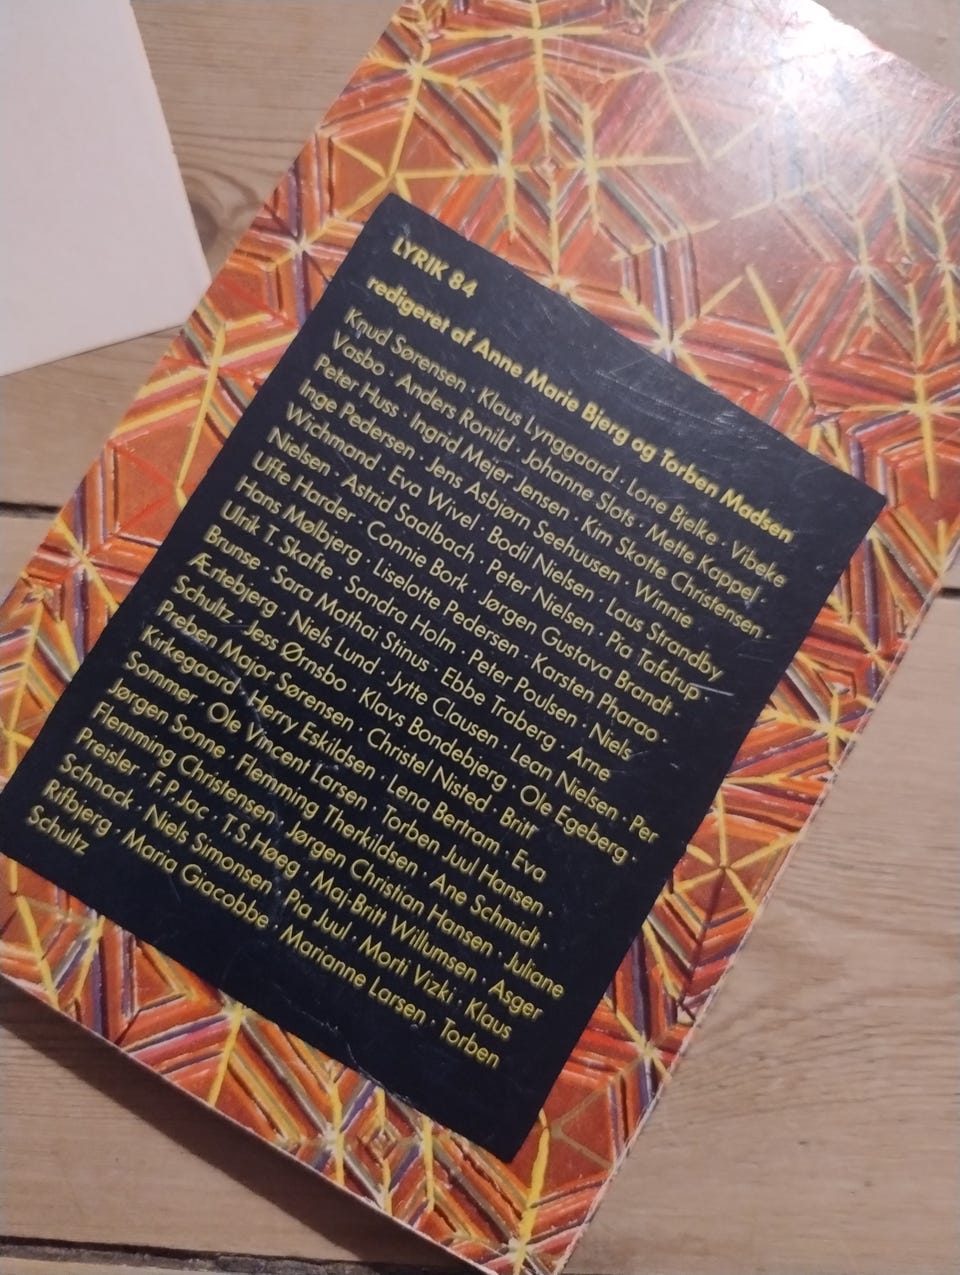 LYRIK 84
redigeret af Anne Marie Bjerg og Torben Madsen
Knud Sørensen · Klaus Lynggaard · Lone Bjelke · Vibeke
Vasbo · Anders Ronild · Johanne Slots · Mette Kappel ·
Peter Huss · Ingrid Mejer Jensen · Kim Skotte Christensen ·
Inge Pedersen · Jens Asbjørn Seehuusen · Winnie
Wichmand · Eva Wivel · Bodil Nielsen · Laus Strandby
Nielsen · Astrid Saalbach · Peter Nielsen · Pia Tafdrup ·
Uffe Harder · Connie Bork · Jørgen Gustava Brandt ·
Hans Mølbjerg · Liselotte Pedersen · Karsten Pharao ·
Ulrik T. Skafte · Sandra Holm · Peter Poulsen · Niels
Brunse · Sara Mathai Stinus · Ebbe Traberg · Arne
Ærtebjerg · Niels Lund · Jytte Clausen · Lean Nielsen · Per
Schultz · Jess Ørnsbo · Klavs Bondebjerg · Ole Egeberg ·
Preben Major Sørensen · Christel Nisted · Britt
Kirkegaard · Herry Eskildsen · Lena Bertram · Eva
Sommer · Ole Vincent Larsen · Torben Juul Hansen ·
Jørgen Sonne · Flemming Therkildsen · Ane Schmidt ·
Flemming Christensen · Jørgen Christian Hansen · Juliane
Preisler · F.P. Jac · T.S. Høeg · Maj-Britt Willumsen · Asger
Schnack · Niels Simonsen · Pia Juul · Morti Vizki · Klaus
Rifbjerg · Maria Giacobbe · Marianne Larsen · Torben
Schultz